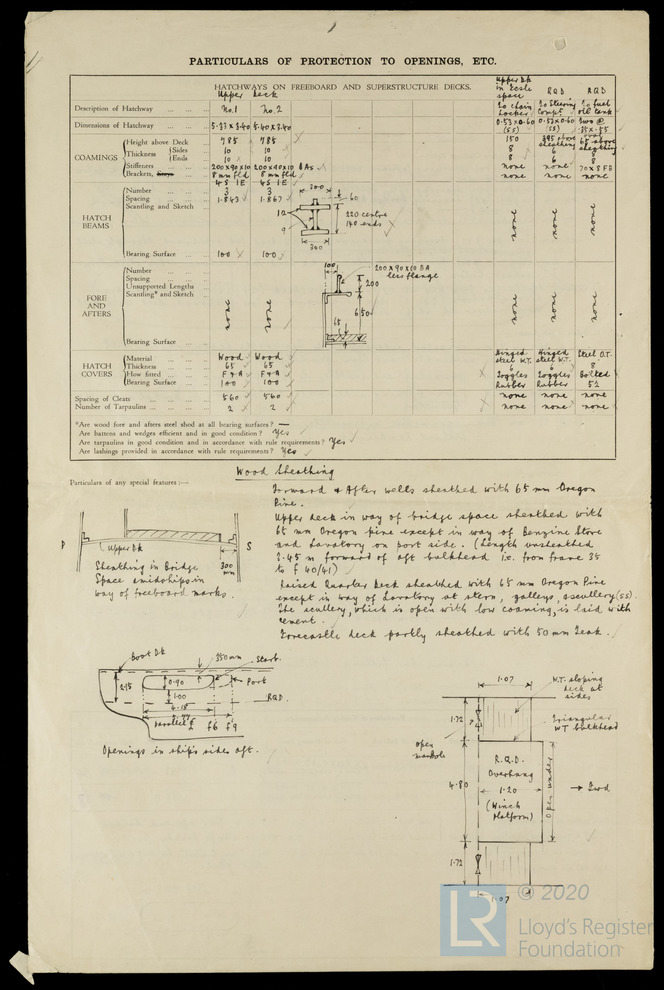 PARTICULARS OF PROTECTION TO OPENINGS, ETC.
HATCHWAYS ON FREEBOARD AND SUPERSTRUCTURE DECKS.
Upper Deck
Upper Dk
in Castle
space
RQD
RQD
Description of Hatchway No.1 No.2 To chain Locker To Steering Compt. To fuel oil tank
Dimensions of Hatchway 5.33 x 3.40 5.40 x 3.40 0.53 x 0.60 (SS) 0.53 x 0.60 (SS) Two @ .35 x .55 oval
COAMINGS
Height above Deck 785 785 150 395 above sheathing 68 above sheathing
Thickness Sides 10 10 8 6 8
Ends 10 10 8 6 8
Stiffeners 200x90x10 200x90x10 BAs none none 70x8 FB
Brackets, Stays 8mm fld 8mm fld none none none
4S 1E 4S 1E
HATCH BEAMS
Number 3 3
Spacing 1.843 1.867
Scantling and Sketch
300
60
10
9
220 centre
140 ends
300
none none none
Bearing Surface 100 100
FORE AND AFTERS
Number
Spacing
Unsupported Lengths
Scantling* and Sketch
none none
100
200x90x10 BA
less flange
200
650
15
none none none
Bearing Surface
HATCH COVERS
Material Wood Wood Hinged steel W.T. Hinged steel W.T. Steel O.T.
Thickness 65 65 6 6 8
How fitted F & A F & A Toggles Toggles Bolted
Bearing Surface 100 100 Rubber Rubber 52
Spacing of Cleats 560 560 none none none
Number of Tarpaulins 2 2 none none none
*Are wood fore and afters steel shod at all bearing surfaces? —
Are battens and wedges efficient and in good condition? Yes
Are tarpaulins in good condition and in accordance with rule requirements? Yes
Are lashings provided in accordance with rule requirements? Yes
Particulars of any special features:—
Wood Sheathing
Forward & After wells sheathed with 65 mm Oregon
Pine.
Upper deck in way of bridge space sheathed with
65 mm Oregon pine except in way of Benzine Store
and Lavatory on port side. (Length unsheathed
3.45 m forward of aft bulkhead i.e. from frame 35
to F 40/41)
Raised Quarter Deck sheathed with 65 mm Oregon Pine
except in way of Lavatory at stern, galleys, scullery (SS).
The scullery, which is open with low coaming, is laid with
cement.
Forecastle deck partly sheathed with 50 mm Teak.
P
S
Upper Dk
300
mm
Sheathing in Bridge
Space amidships in
way of freeboard marks.
Boat Dk
350mm
Starb.
Port
2.15
0.90
1.00
6.15
RQD
parallel
f6 f9
Openings in ship's sides aft.
1.07
W.T. sloping
deck at
sides
1.72
Triangular
WT bulkhead
open
manhole
4.80
R.Q.D.
Overhang
1.20
(Winch
Platform)
Open under
Fwd
1.72
1.07
© 2020
LR
Lloyd's Register
Foundation